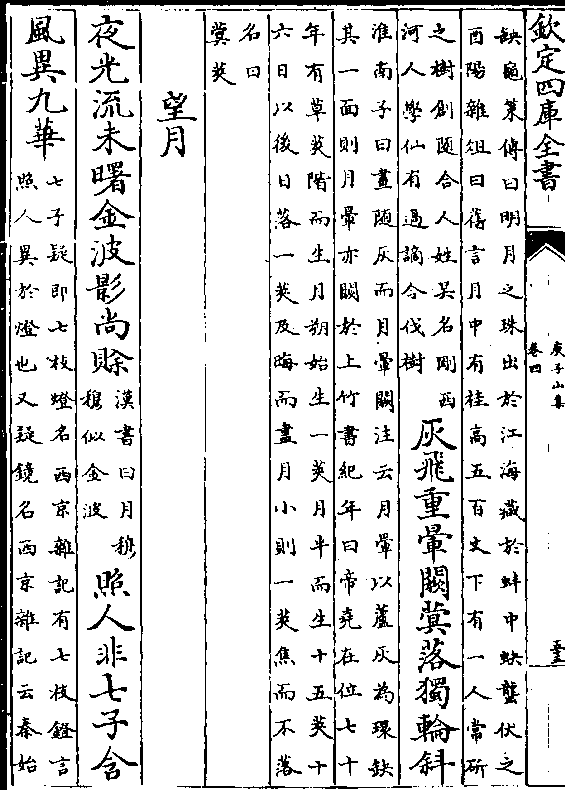 欽定四庫全書
庾子山集
卷四
缺龜䇿傳曰明月之珠出於江海藏於蚌中蚗蠪伏之
酉陽雜俎曰舊言月中有桂高五百丈下有一人常斫
之樹創隨合人姓吳名剛西
河人學仙有過謫令伐樹
灰飛重暈闕蓂落獨輪斜
淮南子曰畫隨灰而月暈闕注云月暈以蘆灰為環缺
其一面則月暈亦闕於上竹書紀年曰帝堯在位七十
年有草莢階而生月朔始生一莢月半而生十五莢十
六日以後日落一莢及晦而盡月小則一莢焦而不落
名曰
蓂莢
望月
夜光流未曙金波影尚賒
漢書曰月穆
穆似金波
照人非七子含
風異九華
七子疑即七枝燈名西京雜記有七枝鐙言
照人異於燈也又疑鏡名西京雜記云秦始